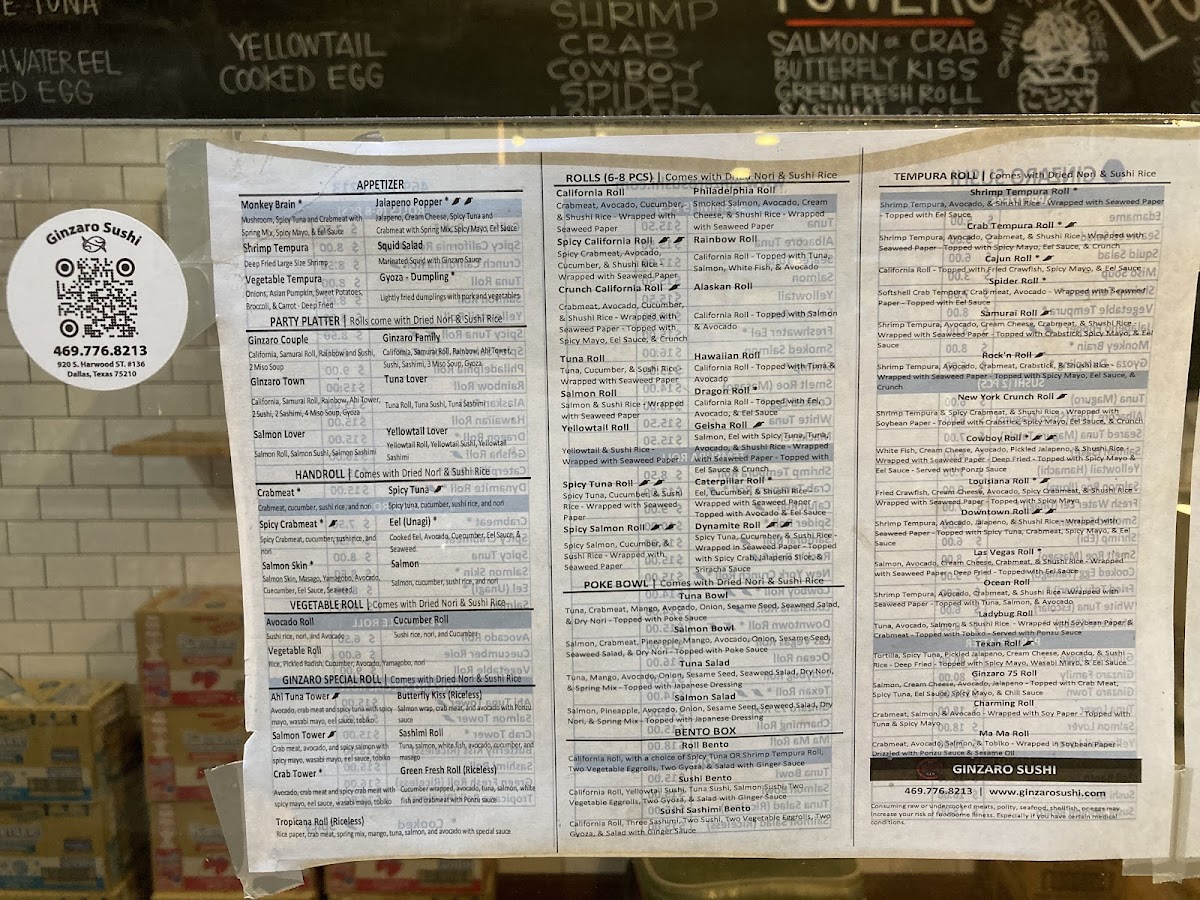 E TUNA
WATER EEL
ED EGG
YELLOWTAIL
COOKED EGG
SHRIMP
CRAB
COWBOY
SPIDER
TOWERS
SALMON or CRAB
BUTTERFLY KISS
GREEN FRESH ROLL
Ginzaro Sushi
469.776.8213
920 S. Harwood ST. #136
Dallas, Texas 75210
APPETIZER
Monkey Brain *
Mushroom, Spicy Tuna and Crabmeat with
Spring Mix, Spicy Mayo, & Eel Sauce
Shrimp Tempura
Deep Fried Large Size Shrimp
Vegetable Tempura
Onions, Asian Pumpkin, Sweet Potatoes,
Broccoli, & Carrot - Deep Fried
Jalapeno Popper *
Jalapeno, Cream Cheese, Spicy Tuna and
Crabmeat with Spring Mix, Spicy Mayo, Eel Sauce
Squid Salad
Marinated Squid with Ginzaro Sauce
Gyoza - Dumpling *
Lightly fried dumplings with pork and vegetables
PARTY PLATTER | Rolls come with Dried Nori & Sushi Rice
Ginzaro Couple
California, Samurai Roll, Rainbow and Sushi,
2 Miso Soup
Ginzaro Town
California, Samurai Roll, Rainbow, Ahi Tower,
2 Sushi, 2 Sashimi, 4 Miso Soup, Gyoza
Salmon Lover
Salmon Roll, Salmon Sushi, Salmon Sashimi
Ginzaro Family
California, Samurai Roll, Rainbow, Ahi Tower,
Sushi, Sashimi, 3 Miso Soup, Gyoza
Tuna Lover
Tuna Roll, Tuna Sushi, Tuna Sashimi
Yellowtail Lover
Yellowtail Roll, Yellowtail Sushi, Yellowtail
Sashimi
HANDROLL | Comes with Dried Nori & Sushi Rice
Crabmeat *
Crabmeat, cucumber, sushi rice, and nori
Spicy Crabmeat *
Spicy Crabmeat, cucumber, sushi rice, and
nori
Salmon Skin *
Salmon Skin, Masago, Yamagobo, Avocado,
Cucumber, Eel Sauce, Seaweed
Spicy Tuna
Spicy tuna, cucumber, sushi rice, and nori
Eel (Unagi) *
Cooked Eel, Avocado, Cucumber, Eel Sauce, &
Seaweed
Salmon
Salmon, cucumber, sushi rice, and nori
VEGETABLE ROLL | Comes with Dried Nori & Sushi Rice
Avocado Roll
Sushi rice, nori, and Avocado
Vegetable Roll
Rice, Pickled Radish, Cucumber, Avocado, Yamagobo, nori
Cucumber Roll
Sushi rice, nori, and Cucumber
GINZARO SPECIAL ROLL | Comes with Dried Nori & Sushi Rice
Ahi Tuna Tower
Avocado, crab meat and spicy tuna with spicy
mayo, wasabi mayo, eel sauce, tobiko
Salmon Tower
Crab meat, avocado, and spicy salmon with
spicy mayo, wasabi mayo, eel sauce, tobiko
Crab Tower *
Avocado, crab meat and spicy crab meat with
spicy mayo, eel sauce, wasabi mayo, tobiko
Tropicana Roll (Riceless)
Rice paper, crab meat, spring mix, mango, tuna, salmon, and avocado with special sauce
Butterfly Kiss (Riceless)
Salmon wrap, crab meat, and avocado with Ponzu
sauce
Sashimi Roll
Tuna, salmon, white fish, avocado, cucumber, and
masago
Green Fresh Roll (Riceless)
Cucumber wrapped, avocado, tuna, salmon, white
fish and crabmeat with Ponzu sauce
ROLLS (6-8 PCS) | Comes with Dried Nori & Sushi Rice
California Roll
Crabmeat, Avocado, Cucumber,
& Shushi Rice - Wrapped with
Seaweed Paper
Spicy California Roll
Spicy Crabmeat, Avocado,
Cucumber, & Shushi Rice -
Wrapped with Seaweed Paper
Crunch California Roll
Crabmeat, Avocado, Cucumber,
& Shushi Rice - Wrapped with
Seaweed Paper - Topped with
Spicy Mayo, Eel Sauce, & Crunch
Tuna Roll
Tuna, Cucumber, & Sushi Rice -
Wrapped with Seaweed Paper
Salmon Roll
Salmon & Sushi Rice - Wrapped
with Seaweed Paper
Yellowtail Roll
Yellowtail & Sushi Rice -
Wrapped with Seaweed Paper
Spicy Tuna Roll
Spicy Tuna, Cucumber, & Sushi
Rice - Wrapped with Seaweed
Paper
Spicy Salmon Roll
Spicy Salmon, Cucumber, &
Sushi Rice - Wrapped with
Seaweed Paper
Philadelphia Roll
Smoked Salmon, Avocado, Cream
Cheese, & Shushi Rice - Wrapped
with Seaweed Paper
Rainbow Roll
California Roll - Topped with Tuna,
Salmon, White Fish, & Avocado
Alaskan Roll
California Roll - Topped with Salmon
& Avocado
Hawaiian Roll
California Roll - Topped with Tuna &
Avocado
Dragon Roll *
California Roll - Topped with Eel,
Avocado, & Eel Sauce
Geisha Roll
Salmon, Eel with Spicy Tuna, Tuna,
Avocado, & Shushi Rice - Wrapped
with Seaweed Paper - Topped with
Eel Sauce & Crunch
Caterpillar Roll *
Eel, Cucumber, & Shushi Rice -
Wrapped with Seaweed Paper -
Topped with Avocado & Eel Sauce
Dynamite Roll
Spicy Tuna, Cucumber, & Sushi Rice
- Wrapped in Seaweed Paper - Topped
with Spicy Crab, Jalapeno Slice, &
Sriracha Sauce
POKE BOWL | Comes with Dried Nori & Sushi Rice
Tuna Bowl
Tuna, Crabmeat, Mango, Avocado, Onion, Sesame Seed, Seaweed Salad,
& Dry Nori - Topped with Poke Sauce
Salmon Bowl
Salmon, Crabmeat, Pineapple, Mango, Avocado, Onion, Sesame Seed,
Seaweed Salad, & Dry Nori - Topped with Poke Sauce
Tuna Salad
Tuna, Mango, Avocado, Onion, Sesame Seed, Seaweed Salad, Dry Nori,
& Spring Mix - Topped with Japanese Dressing
Salmon Salad
Salmon, Pineapple, Avocado, Onion, Sesame Seed, Seaweed Salad, Dry
Nori, & Spring Mix - Topped with Japanese Dressing
BENTO BOX
Roll Bento
California Roll, with a choice of Spicy Tuna OR Shrimp Tempura Roll,
Two Vegetable Eggrolls, Two Gyoza, & Salad with Ginger Sauce
Sushi Bento
California Roll, Yellowtail Sushi, Tuna Sushi, Salmon Sushi, Two
Vegetable Eggrolls, Two Gyoza, & Salad with Ginger Sauce
Sushi Sashimi Bento
California Roll, Three Sashimi, Two Sushi, Two Vegetable Eggrolls, Two
Gyoza, & Salad with Ginger Sauce
TEMPURA ROLL | Comes with Dried Nori & Sushi Rice
Shrimp Tempura Roll *
Shrimp Tempura, Avocado, & Shushi Rice - Wrapped with Seaweed Paper
- Topped with Eel Sauce
Crab Tempura Roll *
Shrimp Tempura, Avocado, Crabmeat, & Shushi Rice - Wrapped with
Seaweed Paper - Topped with Spicy Mayo, Eel Sauce, & Crunch
Cajun Roll *
California Roll - Topped with Fried Crawfish, Spicy Mayo, & Eel Sauce
Spider Roll *
Softshell Crab Tempura, Crab meat, Avocado - Wrapped with Seaweed
Paper - Topped with Eel Sauce
Samurai Roll
Shrimp Tempura, Avocado, Cream Cheese, Crabmeat, & Shushi Rice -
Wrapped with Seaweed Paper - Topped with Crabstick, Spicy Mayo, & Eel
Sauce
Rock'n Roll
Shrimp Tempura, Avocado, Crabmeat, Crabstick, & Shushi Rice -
Wrapped with Seaweed Paper - Topped with Spicy Mayo, Eel Sauce, &
Crunch
New York Crunch Roll
Shrimp Tempura & Spicy Crabmeat, & Shushi Rice - Wrapped with
Soybean Paper - Topped with Crabstick, Spicy Mayo, Eel Sauce, & Crunch
Cowboy Roll *
White Fish, Cream Cheese, Avocado, Pickled Jalapeno, & Shushi Rice -
Wrapped with Seaweed Paper - Deep Fried - Topped with Spicy Mayo &
Eel Sauce - Served with Ponzu Sauce
Louisiana Roll *
Fried Crawfish, Cream Cheese, Avocado, Spicy Crabmeat, & Shushi Rice -
Wrapped with Seaweed Paper - Topped with Spicy Mayo
Downtown Roll
Shrimp Tempura, Avocado, Jalapeno, & Shushi Rice - Wrapped with
Seaweed Paper - Topped with Spicy Tuna, Crabmeat, Spicy Mayo, & Eel
Sauce
Las Vegas Roll
Salmon, Avocado, Cream Cheese, Crabmeat, & Shushi Rice - Wrapped with
Seaweed Paper - Deep Fried - Topped with Eel Sauce
Ocean Roll
Shrimp Tempura, Avocado, Crabmeat, & Shushi Rice - Wrapped with
Seaweed Paper - Topped with Tuna, Salmon, & Avocado
Ladybug Roll
Tuna, Avocado, Salmon, & Shushi Rice - Wrapped with Soybean Paper &
Crabmeat - Topped with Tobiko - Served with Ponzu Sauce
Texan Roll
Tortilla, Spicy Tuna, Pickled Jalapeno, Cream Cheese, Avocado, & Sushi
Rice - Deep Fried - Topped with Spicy Mayo, Wasabi Mayo, & Eel Sauce
Ginzaro 75 Roll
Salmon, Cream Cheese, Avocado, Jalapeno - Topped with Crab Meat,
Spicy Tuna, Eel Sauce, Spicy Mayo, & Chili Sauce
Charming Roll
Crabmeat, Salmon, & Avocado - Wrapped with Soy Paper - Topped with
Tuna & Spicy Mayo
Ma Ma Roll
Crabmeat, Avocado, Salmon, & Tobiko - Wrapped in Soybean Paper
Drizzled with Ponzu Sauce & Sesame Oil
GINZARO SUSHI
469.776.8213 | www.ginzarosushi.com
Consuming raw or undercooked meats, poultry, seafood, shellfish, or eggs may
increase your risk of foodborne illness. Especially if you have certain medical
conditions.